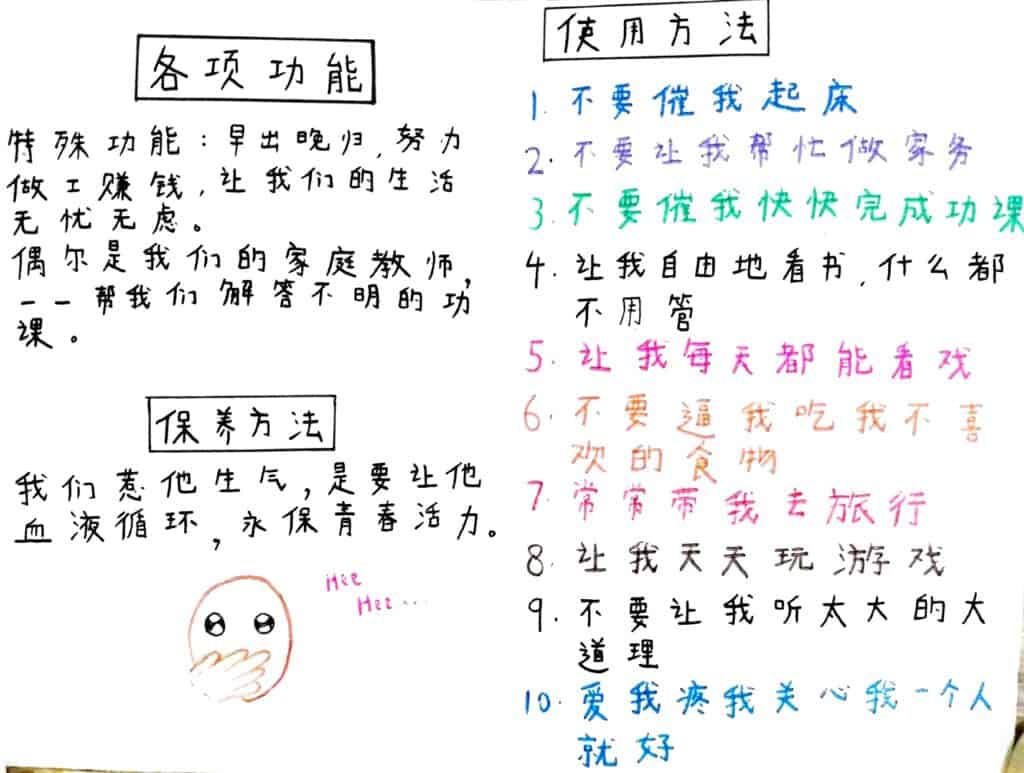 各项功能
特殊功能：早出晚归，努力
做工赚钱，让我们的生活
无忧无虑。
偶尔是我们的家庭教师，
一一帮我们解答不明的功
课。
保养方法
我们惹他生气，是要让他
血液循环，永保青春活力。
Hee
Hee...
使用方法
1. 不要催我起床
2. 不要让我帮忙做家务
3. 不要催我快快完成功课
4. 让我自由地看书，什么都
不用管
5. 让我每天都能看戏
6. 不要逼我吃我不喜
欢的食物
7. 常常带我去旅行
8. 让我天天玩游戏
9. 不要让我听太大的大
道理
10. 爱我疼我关心我一个人
就好